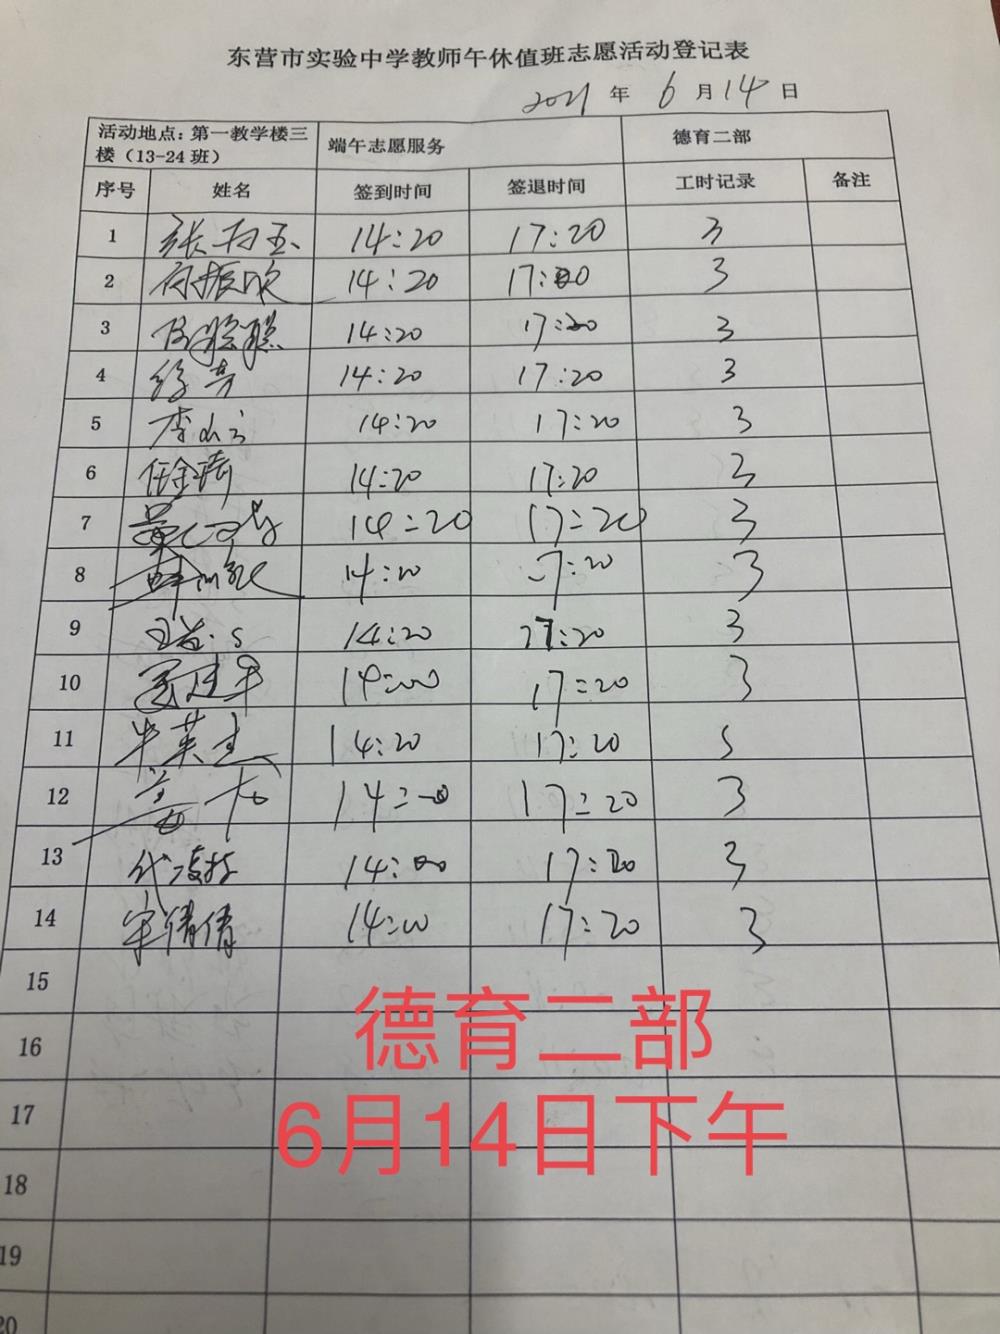 东营市实验中学教师午休值班志愿活动登记表
2021 年 6 月 14 日
活动地点：第一教学楼三楼（13-24 班） 端午志愿服务 德育二部
序号 姓名 签到时间 签退时间 工时记录 备注
1 14:20 17:20 3
2 14:20 17:20 3
3 14:20 17:20 3
4 14:20 17:20 3
5 14:20 17:20 3
6 任金琦 14:20 17:20 3
7 14:20 17:20 3
8 14:20 17:20 3
9 14:20 17:20 3
10 17:20 3
11 牟英杰 14:20 17:20
12 姜 17:20 3
13 代凌 17:20 3
14 宋倩倩 17:20 3
15
16
17
18
19
20
德育二部
6月14日下午